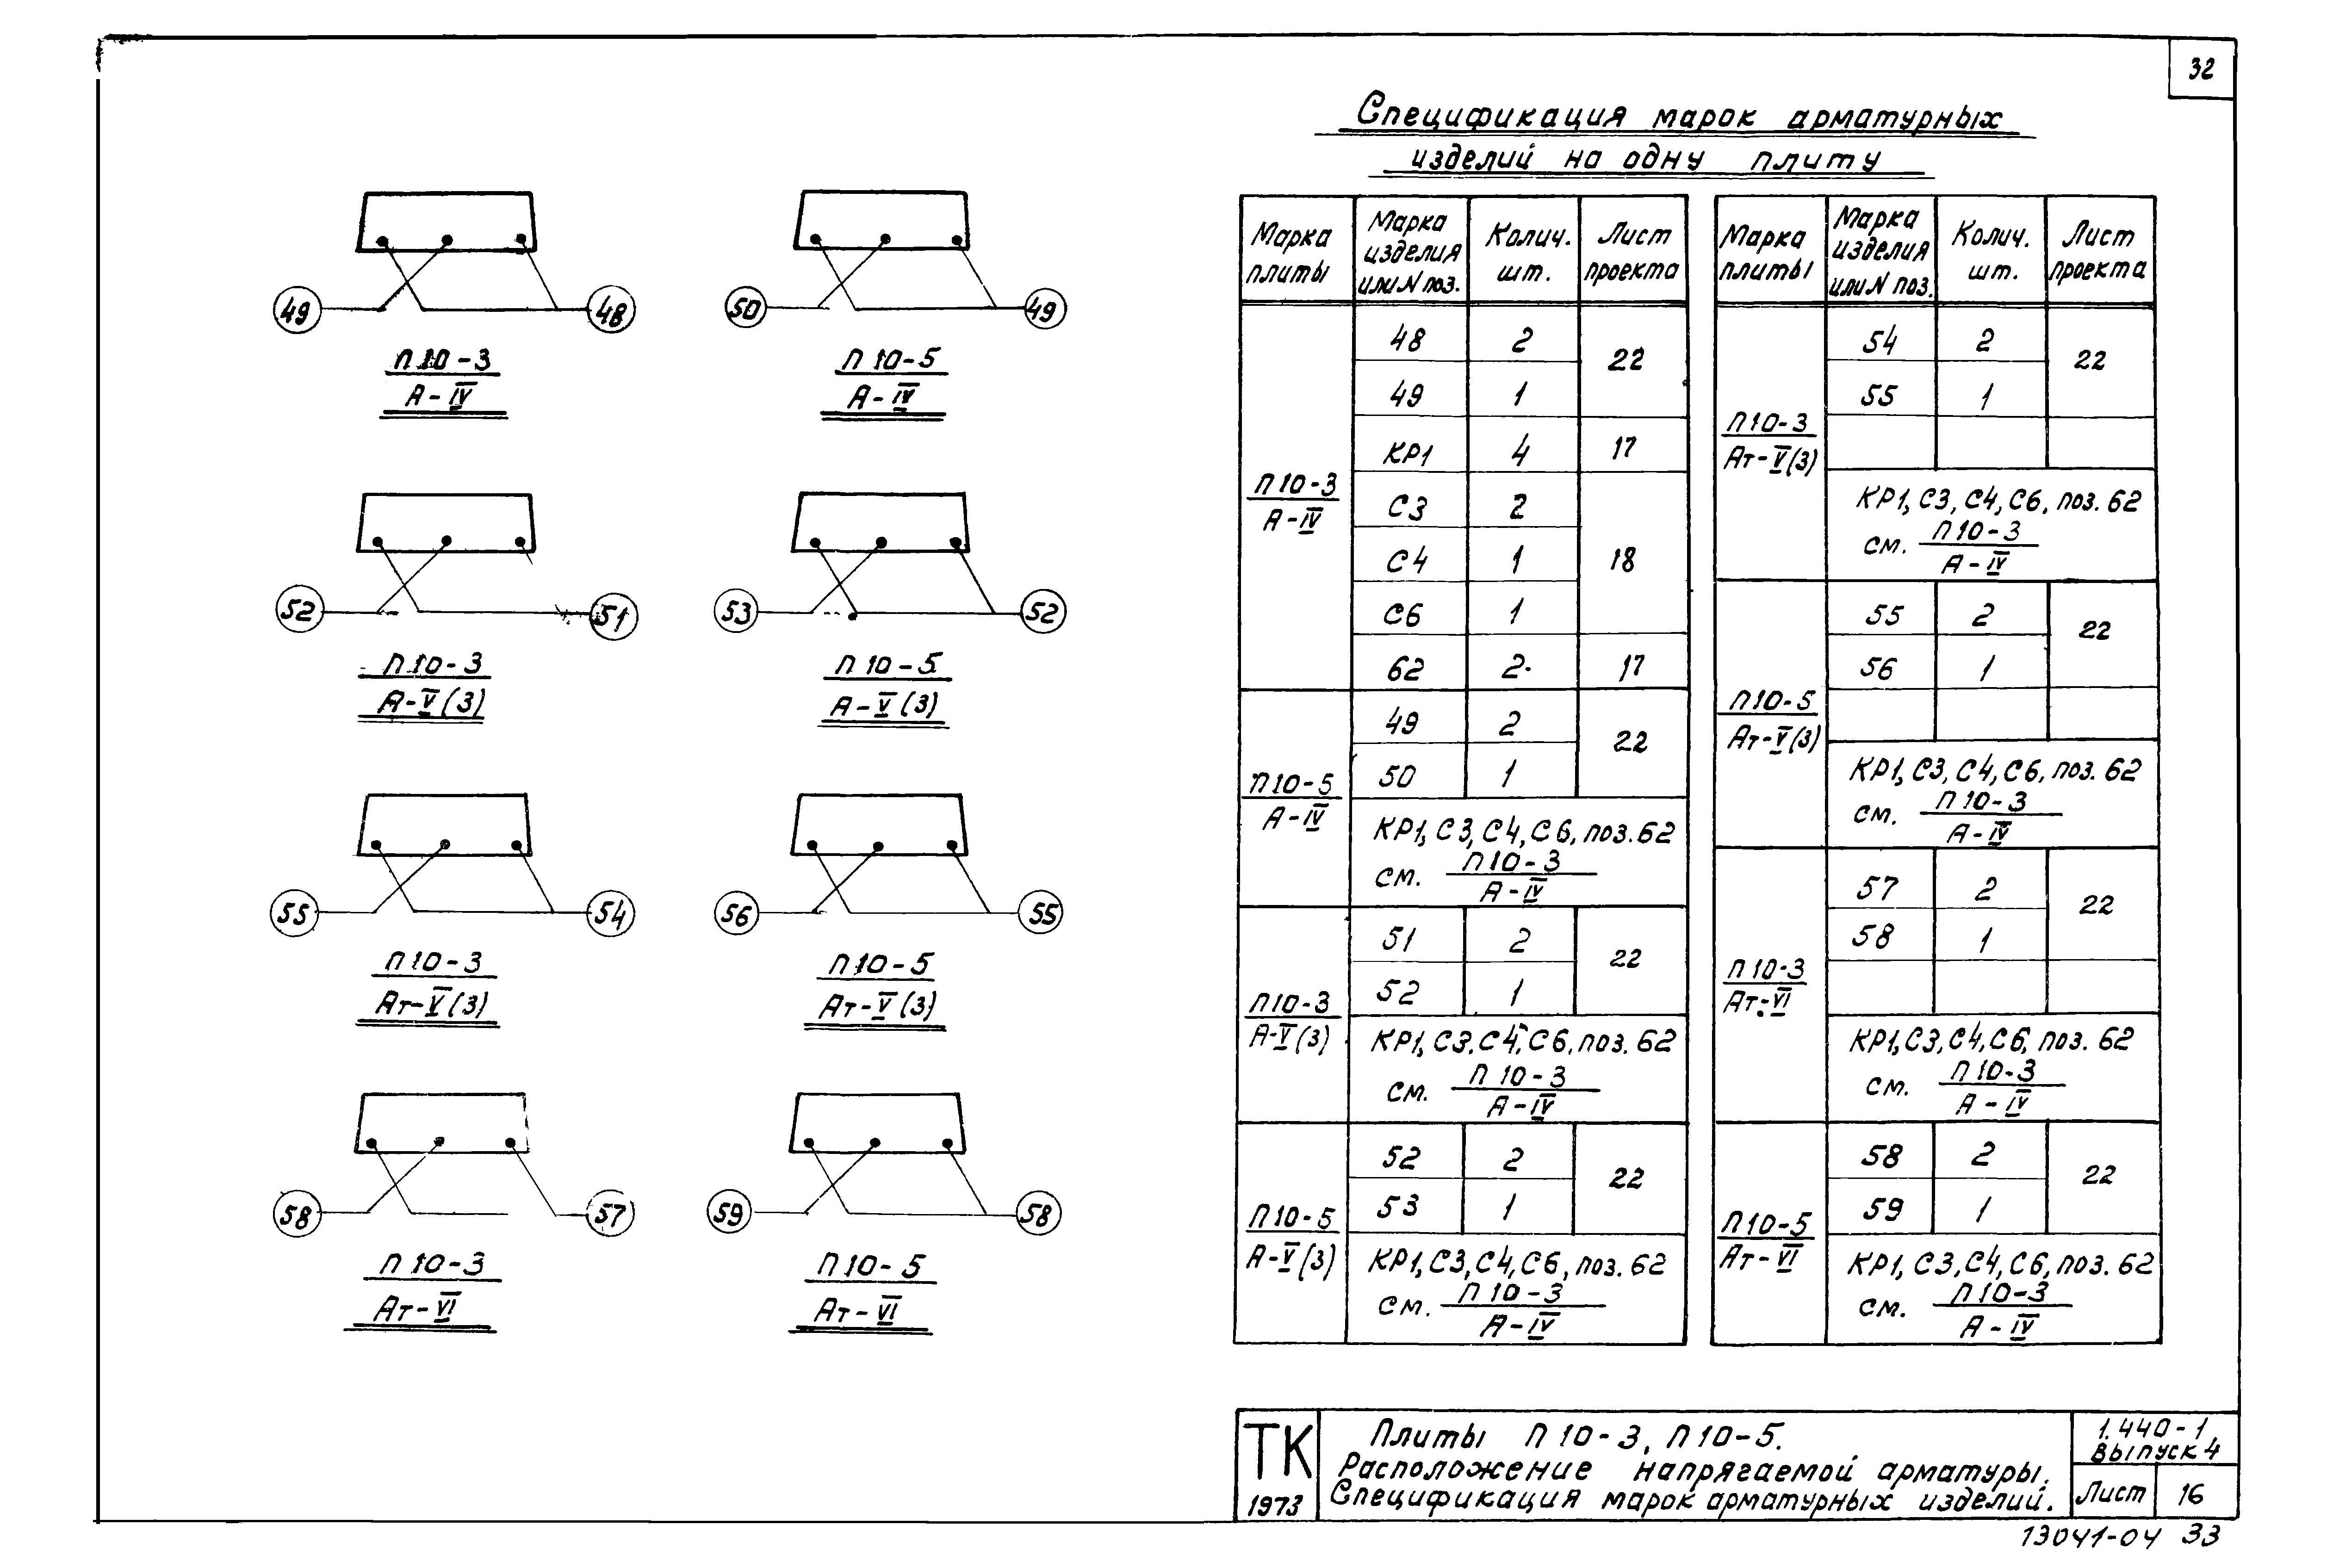 32
Спецификация марок арматурных
изделий на одну плиту
49 48
П 10-3
А-IV
50 49
П 10-5
А-IV
52 51
П 10-3
А-V(3)
53 52
П 10-5
А-V(3)
55 54
П 10-3
Ат-V(3)
56 55
П 10-5
Ат-V(3)
58 57
П 10-3
Ат-VI
59 58
П 10-5
Ат-VI
Марка плиты Марка изделия или N поз. Колич. шт. Лист проекта
П 10-3
А-IV
48 2 22
49 1
КР1 4 17
С3 2
С4 1 18
С6 1
62 2 17
П 10-5
А-IV
49 2 22
50 1
КР1, С3, С4, С6, поз. 62
см. П 10-3
А-IV
П 10-3
А-V(3)
51 2 22
52 1
КР1, С3, С4, С6, поз. 62
см. П 10-3
А-IV
П 10-5
А-V(3)
52 2 22
53 1
КР1, С3, С4, С6, поз. 62
см. П 10-3
А-IV
Марка плиты Марка изделия или N поз. Колич. шт. Лист проекта
П 10-3
Ат-V(3)
54 2 22
55 1
КР1, С3, С4, С6, поз. 62
см. П 10-3
А-IV
П 10-5
Ат-V(3)
55 2 22
56 1
КР1, С3, С4, С6, поз. 62
см. П 10-3
А-IV
П 10-3
Ат-VI
57 2 22
58 1
КР1, С3, С4, С6, поз. 62
см. П 10-3
А-IV
П 10-5
Ат-VI
58 2 22
59 1
КР1, С3, С4, С6, поз. 62
см. П 10-3
А-IV
ТК
1973
Плиты П 10-3, П 10-5.
Расположение напрягаемой арматуры.
Спецификация марок арматурных изделий.
1.440-1
Выпуск 4
Лист 16
13041-04 33